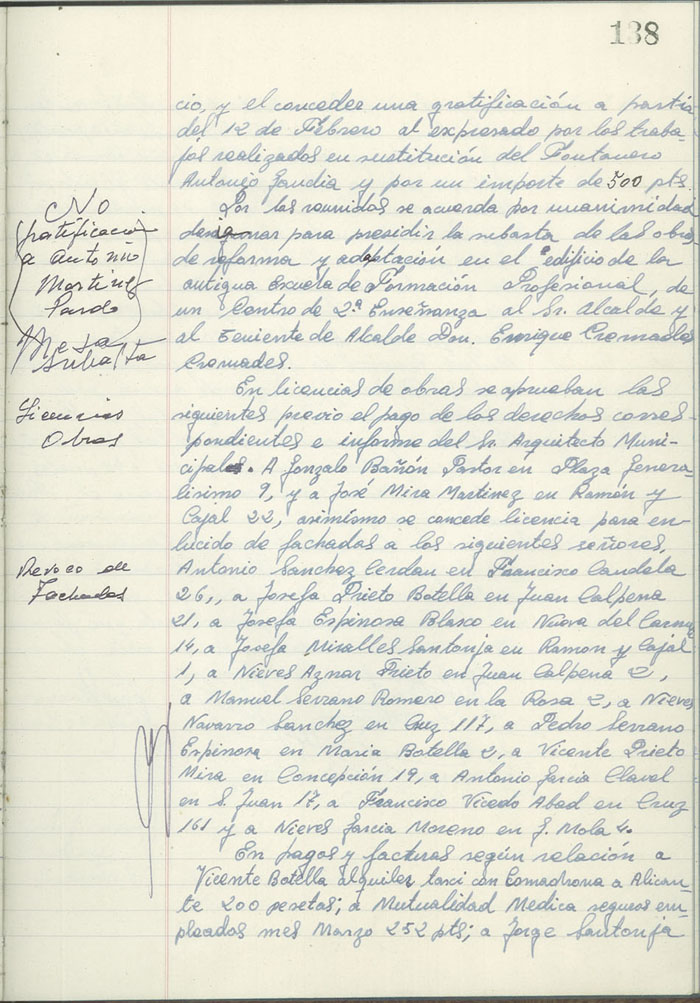 138
cio, y el conceder una gratificación a partir
del 12 de Febrero al expresado por los traba-
jos realizados en sustitución del Fontanero
Antonio Gandia y por un importe de 500 pts.
NO
gratificación
a Antonio
Martinez
Pardo
Por los reunidos se acuerda por unanimidad
designar para presidir la subasta de las obras
de reforma y adaptación en el edificio de la
antigua Escuela de Formación Profesional, de
un Centro de 2ª Enseñanza al Sr. Alcalde y
al Teniente de Alcalde Don. Enrique Cremades
Cremades.
Mesa
Subasta
En licencias de obras se aprueban las
siguientes previo el pago de los derechos corres-
pondientes e informe del Sr. Arquitecto Muni-
cipal. A Gonzalo Bañón Pastor en Plaza Genera-
lisimo 9, y a José Mira Martinez en Ramón y
Cajal 22, asimismo se concede licencia para en-
lucido de fachadas a los siguientes señores,
Licencias
Obras
Antonio Sanchez Cerdan en Francisco Candela
26,, a Josefa Prieto Botella en Juan Calpena
21, a Josefa Espinosa Blasco en Nueva del Carmen
14, a Josefa Miralles Santonja en Ramon y Cajal
1, a Nieves Aznar Prieto en Juan Calpena 2,
a Manuel Serrano Romero en la Rosa 2, a Nieves
Navarro Sanchez en Cruz 117, a Pedro Serrano
Espinosa en Maria Botella 2, a Vicente Prieto
Mira en Concepción 19, a Antonio Garcia Clavel
en S. Juan 17, a Francisco Vicedo Abad en Cruz
161 y a Nieves Garcia Moreno en G. Mola 4.
Revoco de
Fachadas
En pagos y facturas según relación a
Vicente Botella alquiler taxi con Comadrona a Alican-
te 200 pesetas; a Mutualidad Medica seguros em-
pleados mes Marzo 252 pts; a Jorge Santonja